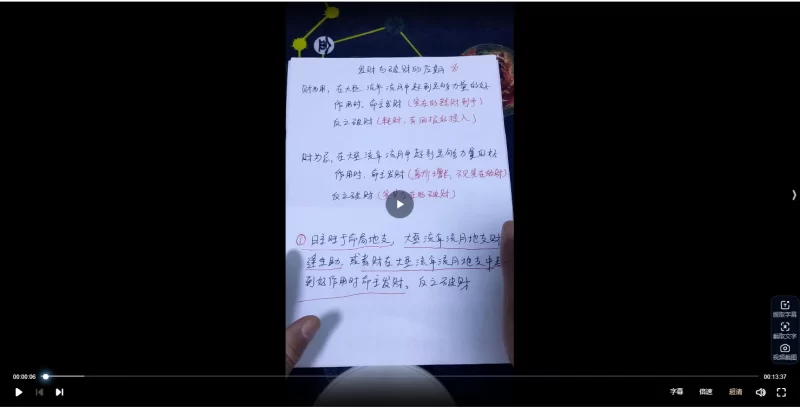 发财与破财的应期 ※
财为用,在大运、流年、流月中起到足够力量的好
作用时,命主发财(实在的钱财到手)
反之破财(耗财,有回报的投入)
财为忌,在大运流年流月中起到足够力量的好
作用时,命主发财(身价增长,不见实在的财)
反之破财(实实在在的破财)
① 日主旺于命局地支,大运流年流月地支财
逢生助,或者财在大运流年流月地支中起
到好作用时命主发财。反之破财
提取字幕
截取文字
视频截图
00:00:06
00:13:37
字幕
倍速
超清